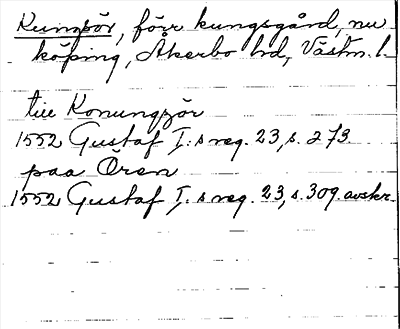 Kungsör, förr kungsgård, nu
köping, Åkerbo hd, Västm. l.
till Konungzör
1552 Gustaf I:s reg. 23, s. 273.
paa Ören
1552 Gustaf I:s reg. 23, s. 309. avskr.